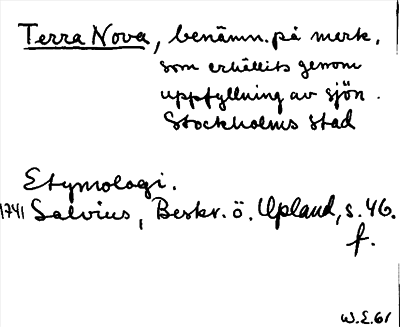 Terra Nova, benämn. på mark,
som erhållits genom
uppfyllning av sjön.
Stockholms stad
Etymologi.
1741 Salvius, Beskr. ö. Upland, s. 46.
f.
W.E. 61